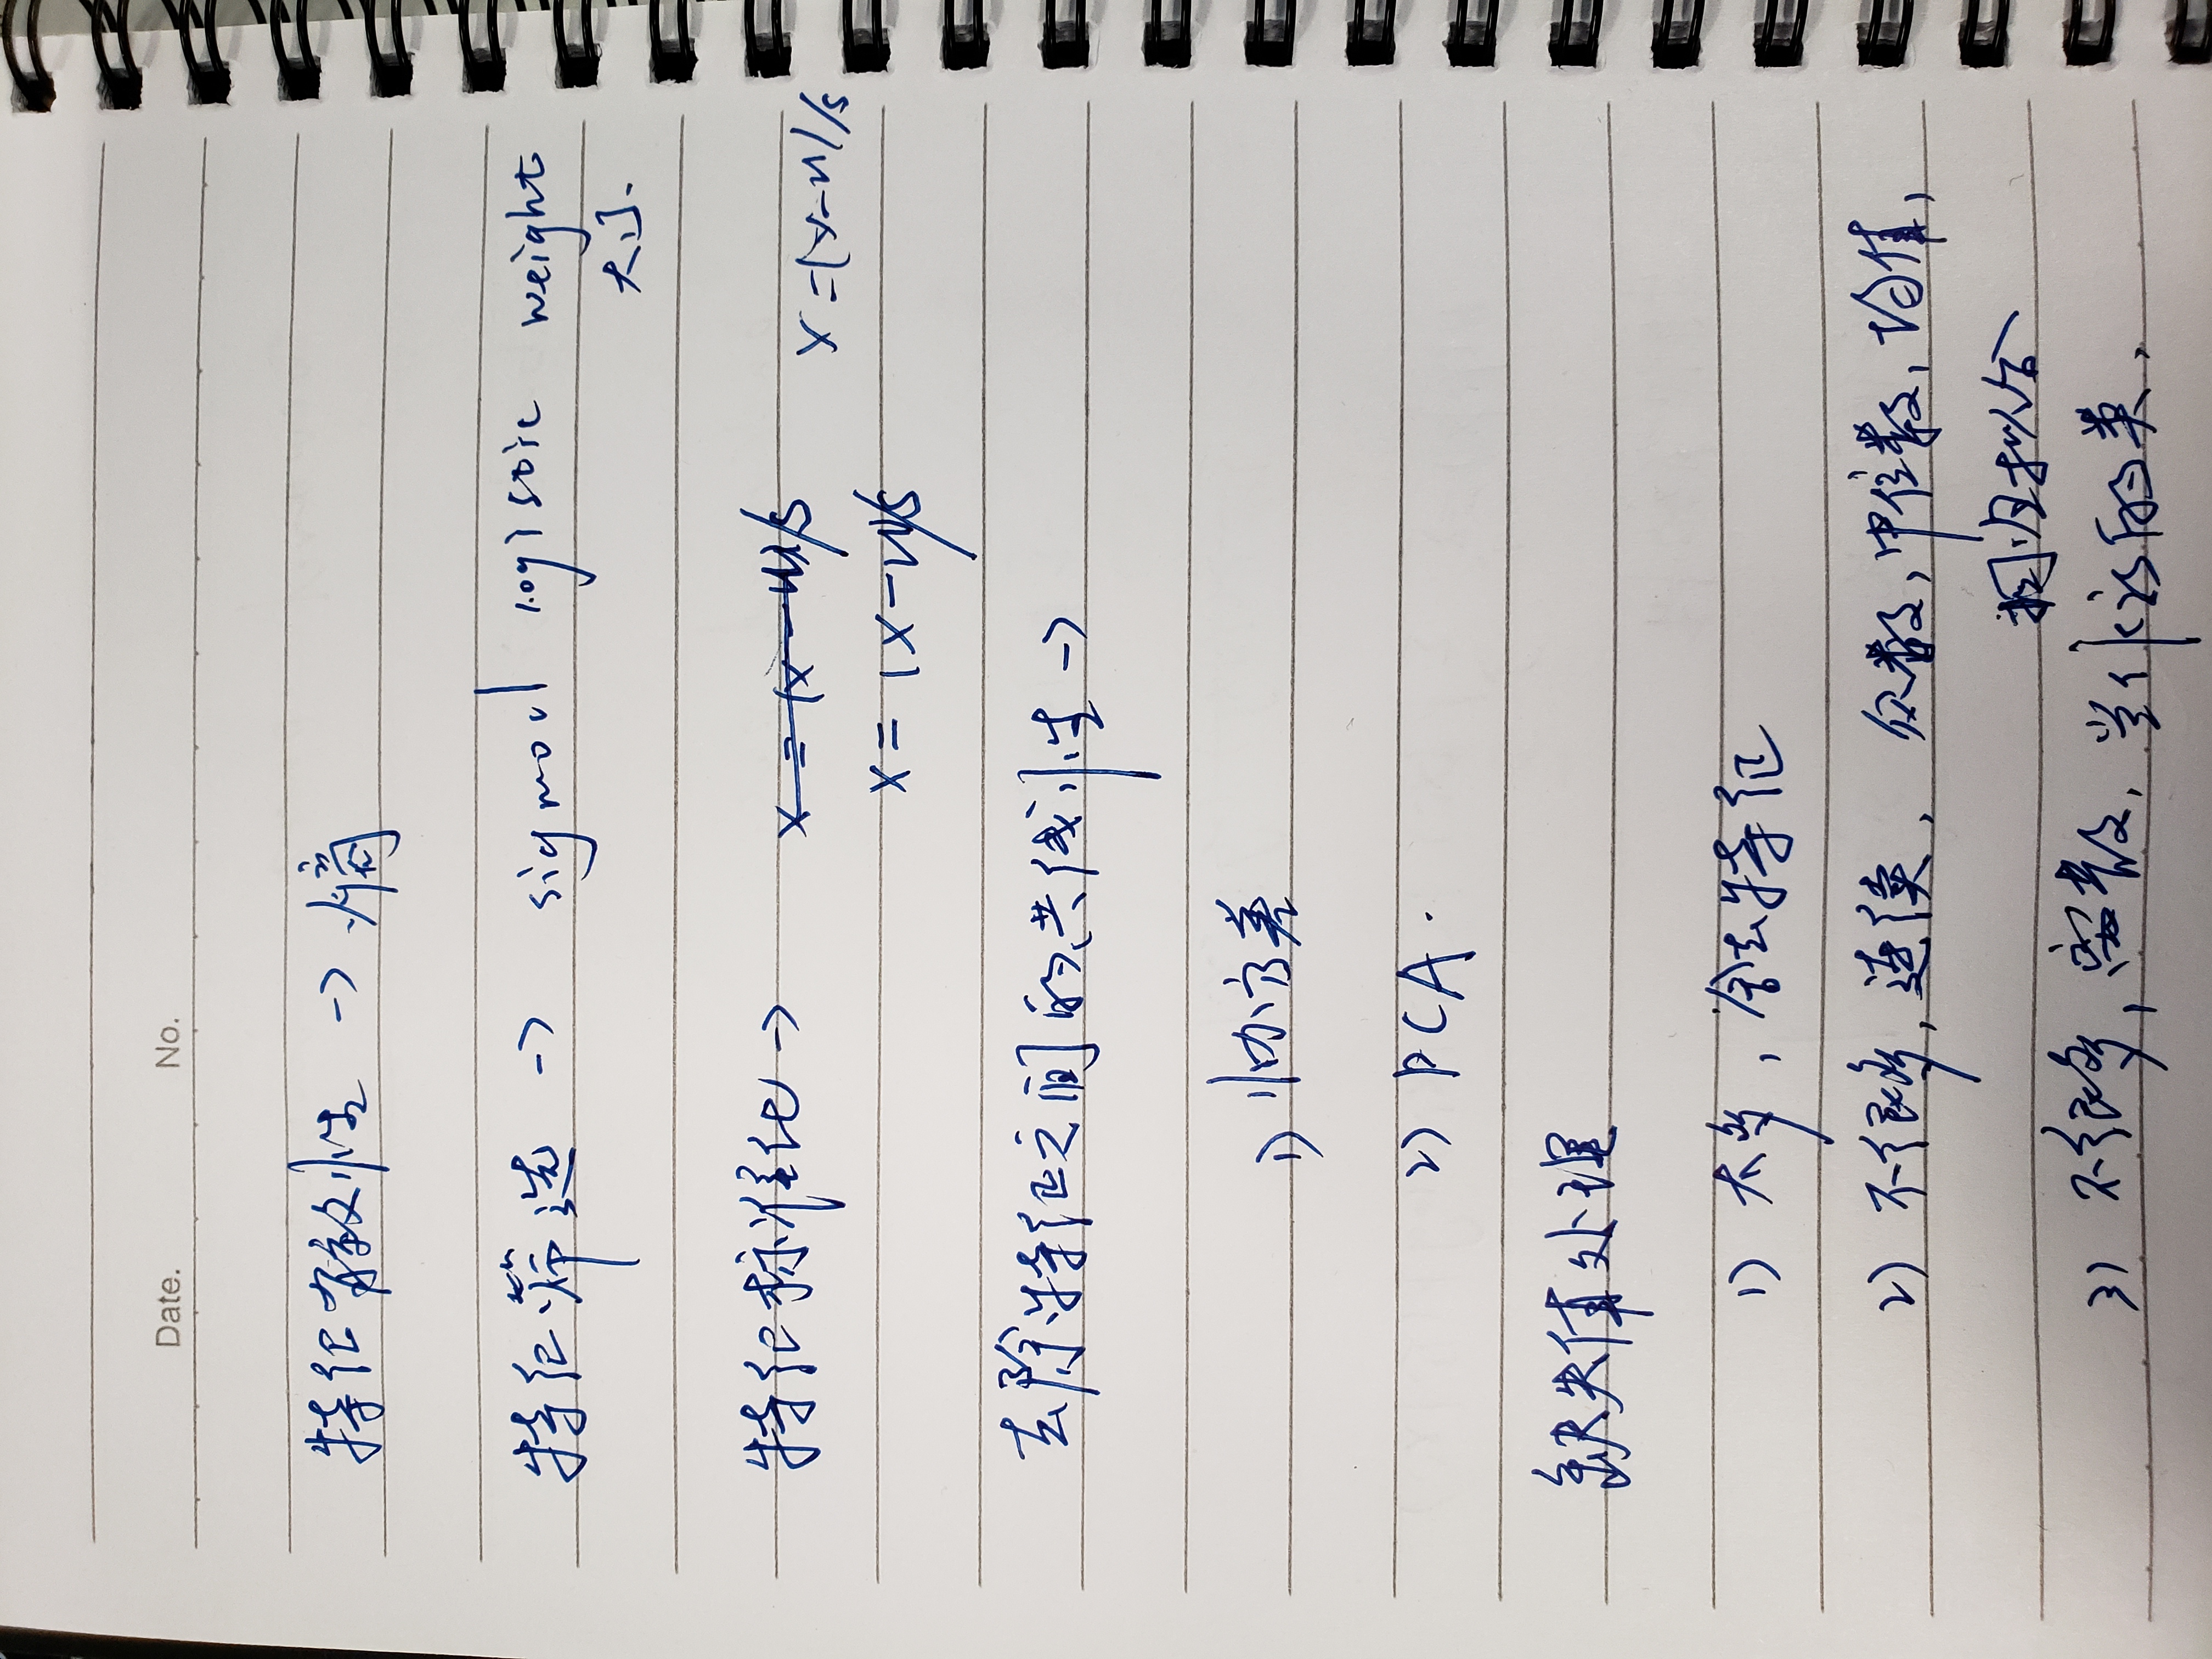 Date. No.
特征有效性 → 熵
特征筛选 → sigmod logistic weight
大小.
特征标准化 →
x = (x-u)/s
x = (x-u)/s
x = (x-u)/s
去除特征之间的共线性 →
1) 协方差
2) PCA.
缺失值处理
1) 太多, 舍去特征
2) 不很多, 连续, 众数, 中位数, 均值,
回归拟合
3) 不很多, 离散, 当作新的类,